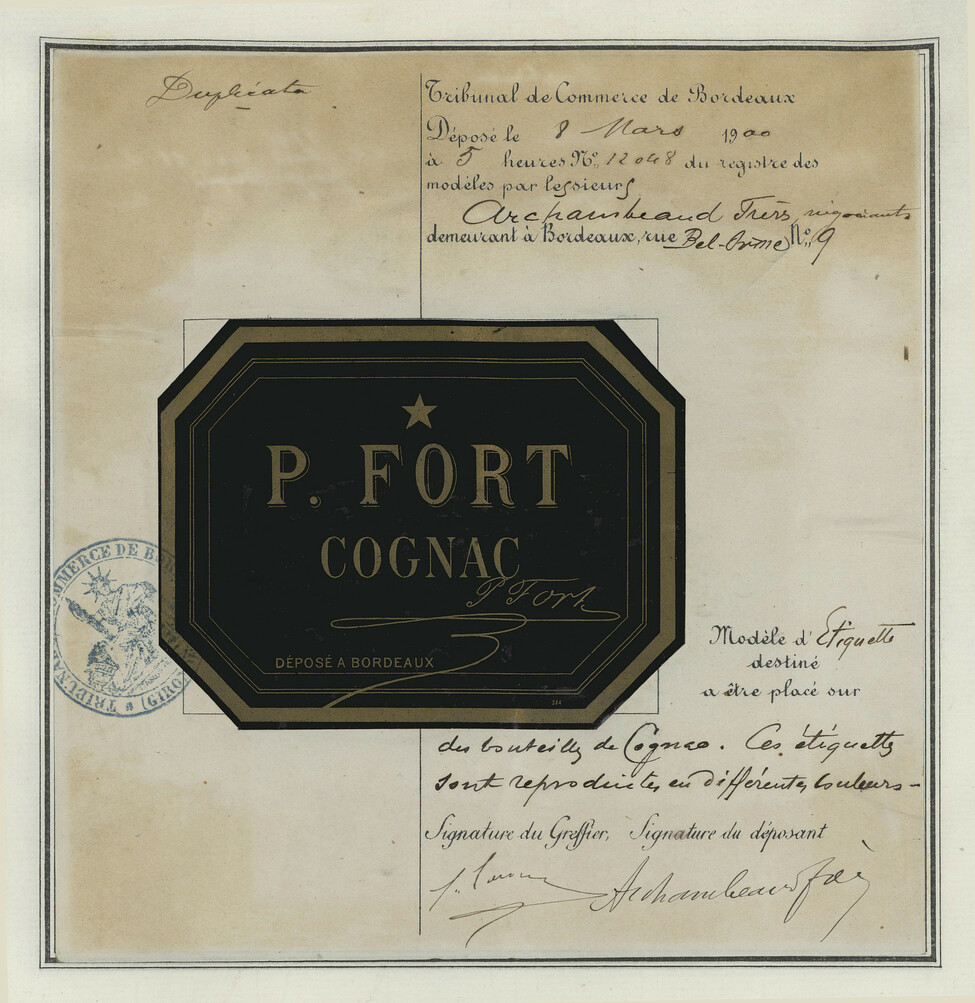 Duplicata
Tribunal de Commerce de Bordeaux
Déposé le 8 Mars 1900
à 5 heures Nº 12048 du registre des
modèles par les sieurs
Archambeaud Frères, négociants
demeurant à Bordeaux, rue Bel-Orme Nº 9
P. FORT
COGNAC
P Fort
DÉPOSÉ A BORDEAUX
TRIBUNAL COMMERCE DE BOR
(GIRO
Modèle d'Etiquette
destiné
a être placé sur
des bouteilles de Cognac. Ces étiquettes
sont reproduites en différentes couleurs-
Signature du Greffier, Signature du déposant
Archambeaud frères